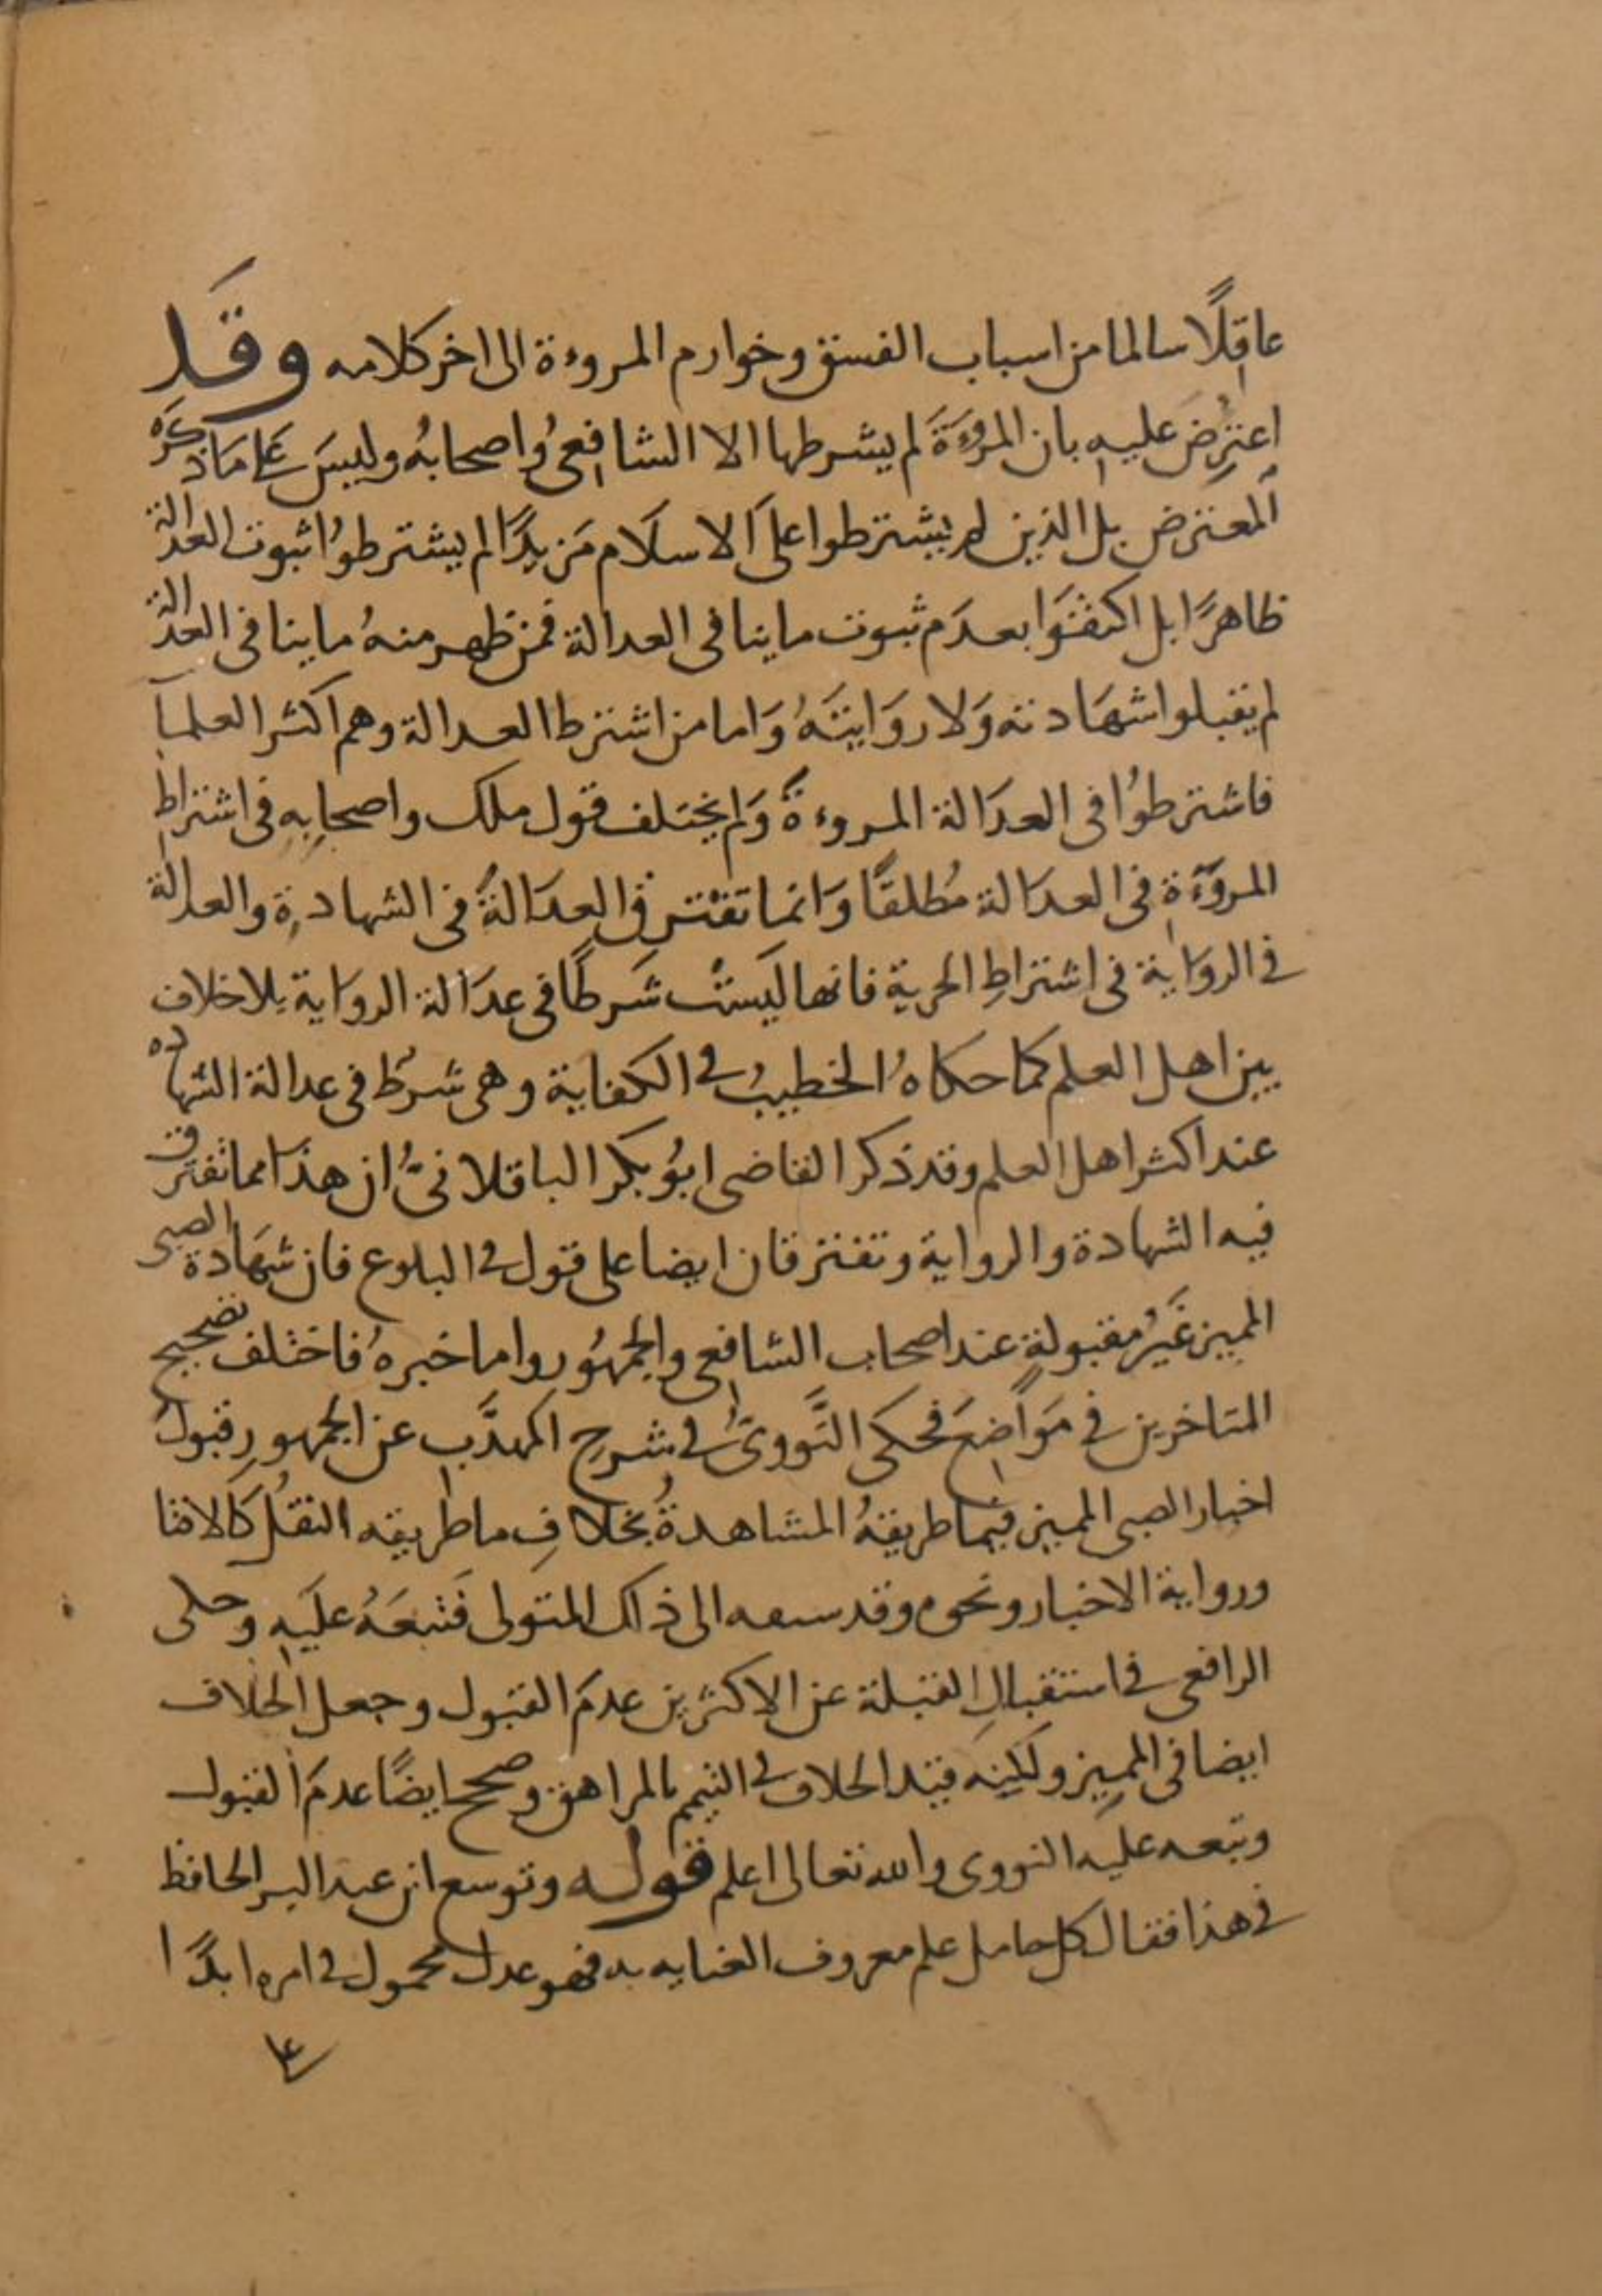 عاقِلًا سالما من اسباب الفسق وخوارم المروءة الى اخر كلامه وقَد
اعتُرِضَ عليه بان المروءَةَ لم يشرطها الا الشافِعىُ واصحابهُ وليسَ عَلَى مَا ذكرَه
المعترض بل الذين لم يشترطوا علىَ الاسلَام مَزيدًا لم يشترطوُا ثبوت العدالة
ظاهرًا بل اكتفَوا بعدَم ثبوت ما ينافى العدالة فمن ظهر منهُ ما ينافى العدالة
لم يقبلوا شهَادته وَلا روَايتَهُ وَاما من اشترط العدالة وهم اكثر العلمآ
فاشترطوُا فى العدَالة المروءةَ وَلم يختلف قول ملك واصحابِهِ فى اشتراطِ
المروَءَةِ فى العدَالة مُطلقًا وَانما تفترِق العدَالةُ فى الشهادةِ والعدالة
فى الروَاية فى اشتراطِ الحرية فانها ليَستْ شَرطًا فى عدَالة الروَاية بلا خلاف
بين اهل العلم كما حكاهُ الخطيبُ فى الكفاية وهى شرطُ فى عدالة الشهاده
عند اكثر اهل العلم وقد ذكر القاضى ابوُ بكر الباقلانىُّ ان هذا مما تفترق
فيه الشهادة والرواية وتفترقان ايضا على قول فى البلوع فان شهَادة الصبى
المميز غَيرُ مقبولةٍ عند اصحاب الشافِعى والجمهُور واما خبرهُ فاختلف تصحيح
المتاخرين فى مَواضِعَ فحكى النَّووىُّ فى شرحِ المهذَّبِ عن الجمهورِ قبولَ
اخبار الصبى المميز فيما طريقهُ المشاهدةُ بخلافِ ما طريقه النقلُ كالافتا
ورواية الاخبار ونحوه وقد سبقه الى ذلك المتولى فَتبعَهُ عليَه وحكى
الرافعى فى استقبالِ القبلة عن الاكثرين عدمَ القبول وجعل الخلاف
ايضا فى المميز ولكنه قيد الخلاف فى التيمم بالمراهق وصحح ايضًا عدمَ القبول
وتبعه عليه النووى والله تعالى اعلم قوله وتوسع ابن عبد البر الحافظ
فى هذا فقال كل حامل علم معروف العنايه به فهو عدل محمول فى امره ابدًا